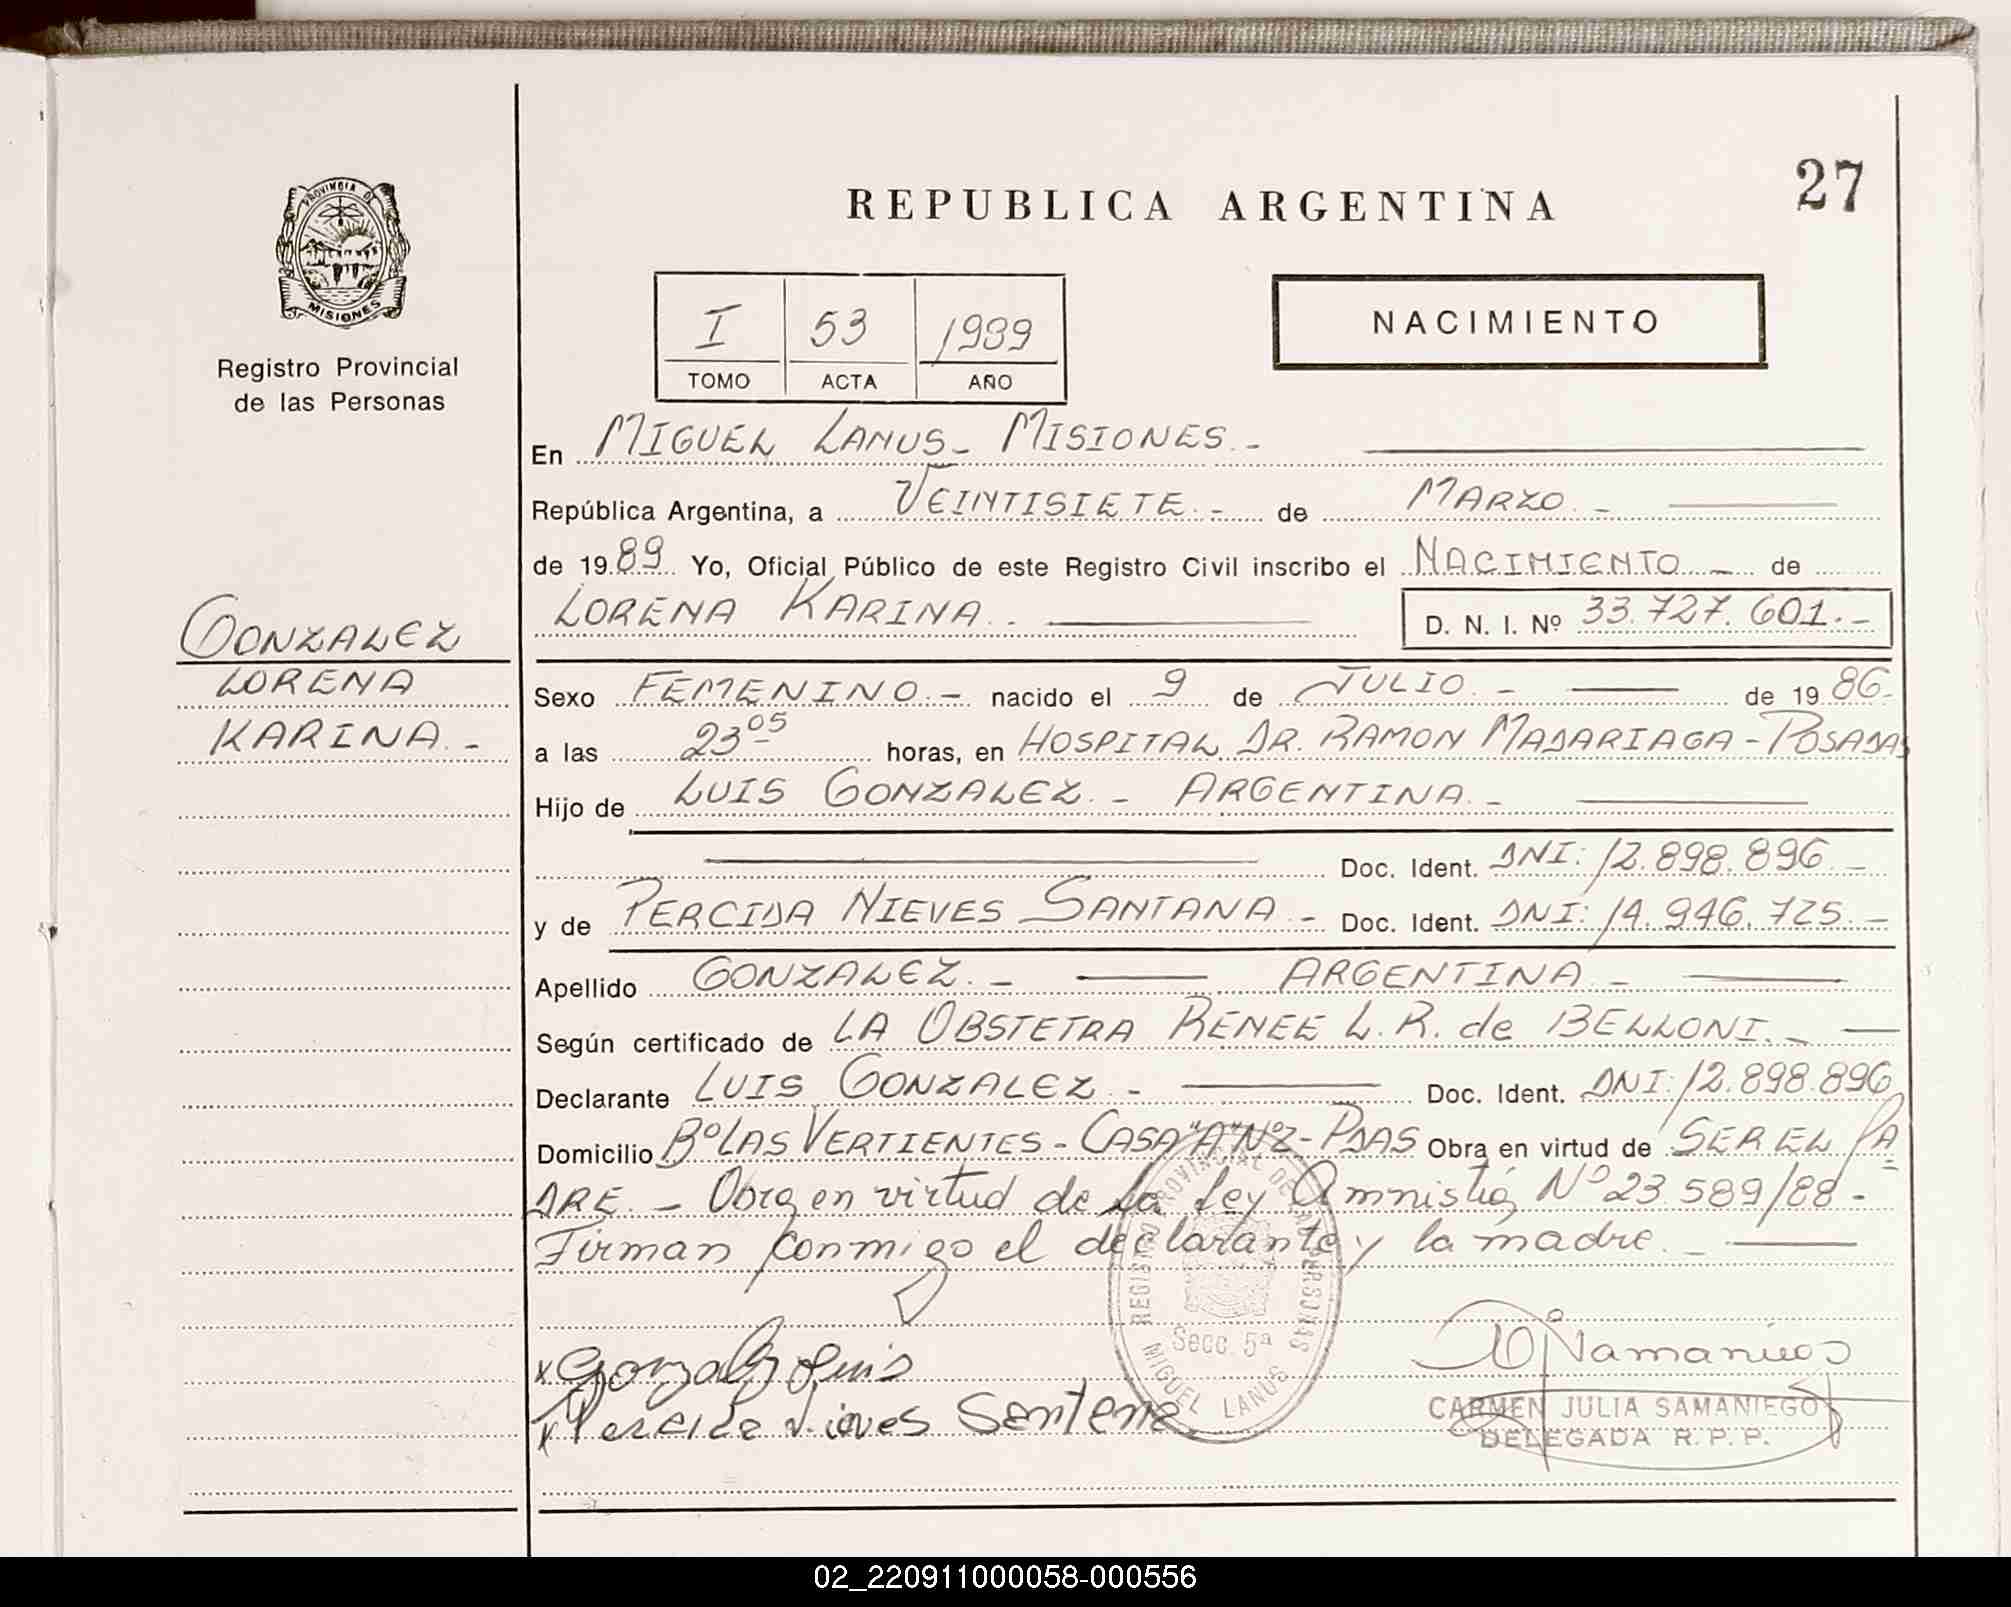 27
REPUBLICA ARGENTINA
PROVINCIA DE
MISIONES
Registro Provincial
de las Personas
NACIMIENTO
I 53 1989
TOMO ACTA AÑO
En MIGUEL LANUS - MISIONES.-
República Argentina, a VEINTISIETE.- de MARZO.-
de 1989 Yo, Oficial Público de este Registro Civil inscribo el NACIMIENTO - de
LORENA KARINA.- D. N. I. Nº 33.727.601.-
GONZALEZ
LORENA
KARINA.-
Sexo FEMENINO.- nacido el 9 de JULIO.- de 1986.-
a las 23 05 horas, en HOSPITAL DR. RAMON MADARIAGA - POSADAS
Hijo de LUIS GONZALEZ.- ARGENTINA.-
Doc. Ident. DNI: 12.898.896.-
y de PERCIDA NIEVES SANTANA.- Doc. Ident. DNI: 14.946.725.-
Apellido GONZALEZ.- ARGENTINA.-
Según certificado de LA OBSTETRA RENEE L. R. de BELLONI.-
Declarante LUIS GONZALEZ.- Doc. Ident. DNI: 12.898.896
Domicilio Bº LAS VERTIENTES - CASA "A" Nº2 - PDAS Obra en virtud de SER EL PA-
DRE.- Obra en virtud de la ley Amnistía Nº 23.589/88 -
Firman conmigo el declarante y la madre.-
REGISTRO PROVINCIAL DE LAS PERSONAS
Secc. 5ª
MIGUEL LANUS
x Gonzalez Luis
x Percida Nieves Santana
CARMEN JULIA SAMANIEGO
DELEGADA R. P. P.
02_220911000058-000556